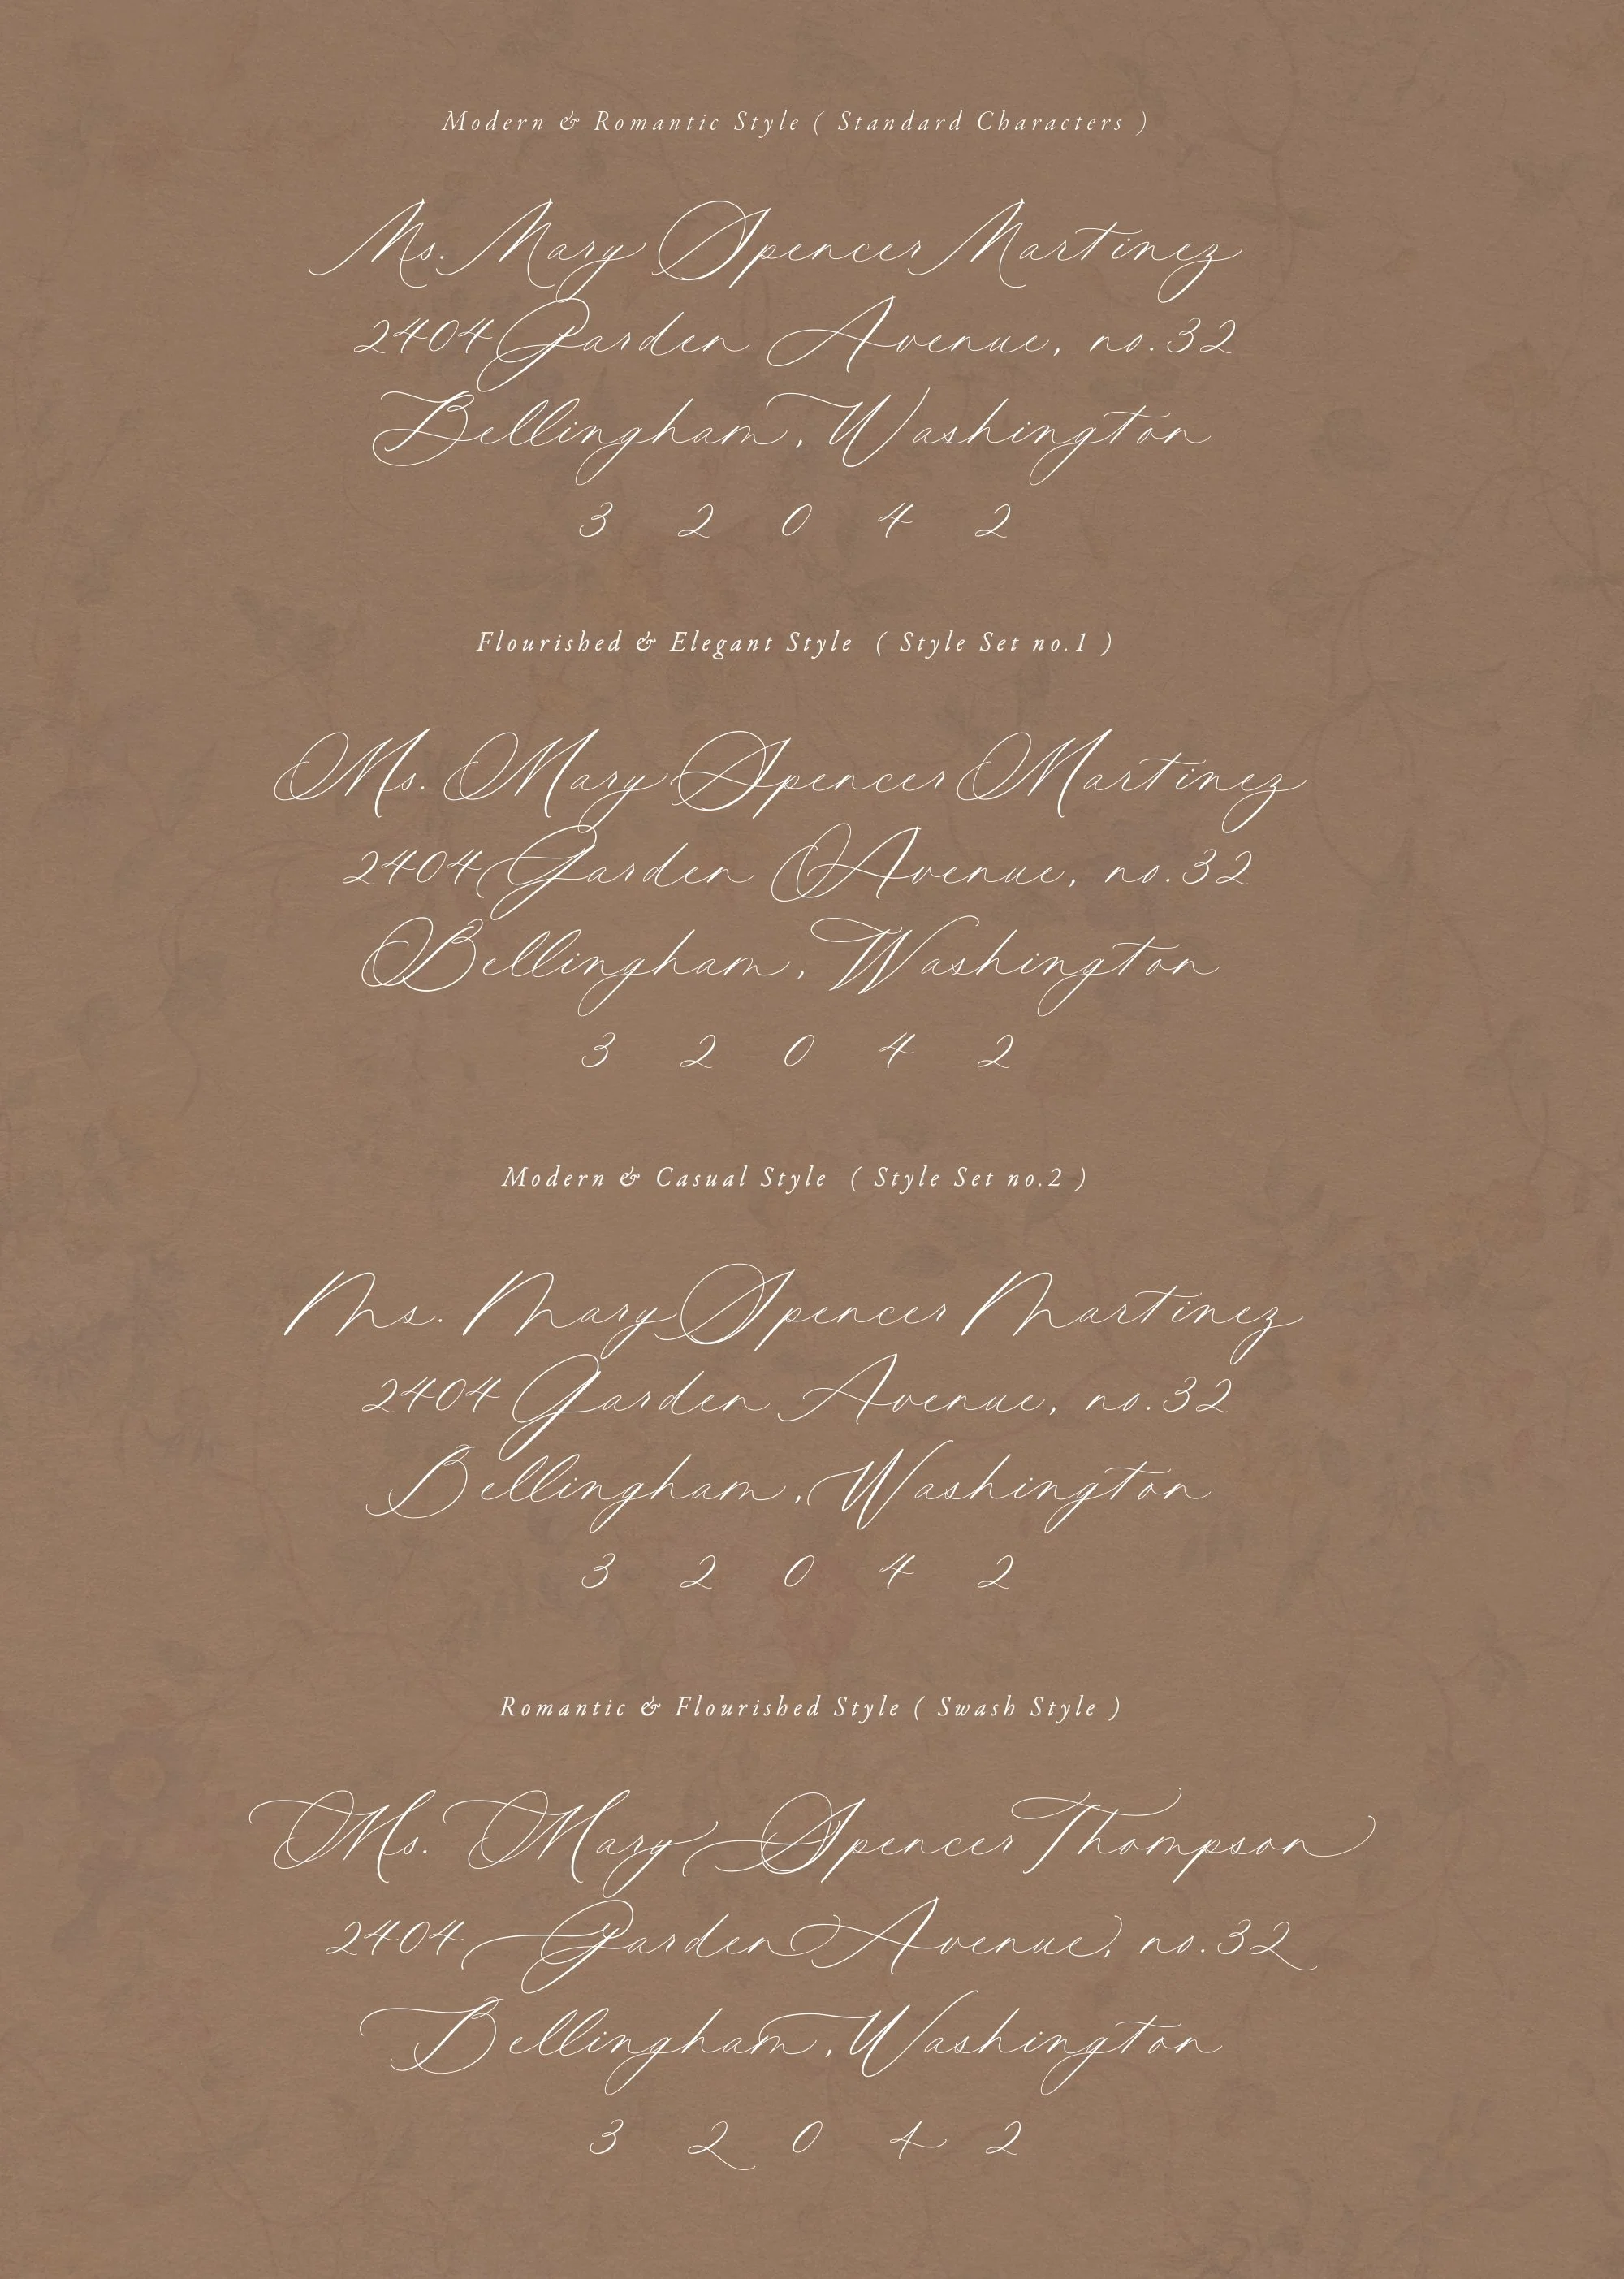 Modern & Romantic Style ( Standard Characters )
Ms. Mary Spencer Martinez
2404 Garden Avenue, no.32
Bellingham, Washington
3 2 0 4 2
Flourished & Elegant Style ( Style Set no.1 )
Ms. Mary Spencer Martinez
2404 Garden Avenue, no.32
Bellingham, Washington
3 2 0 4 2
Modern & Casual Style ( Style Set no.2 )
Ms. Mary Spencer Martinez
2404 Garden Avenue, no.32
Bellingham, Washington
3 2 0 4 2
Romantic & Flourished Style ( Swash Style )
Ms. Mary Spencer Thompson
2404 Garden Avenue, no.32
Bellingham, Washington
3 2 0 4 2